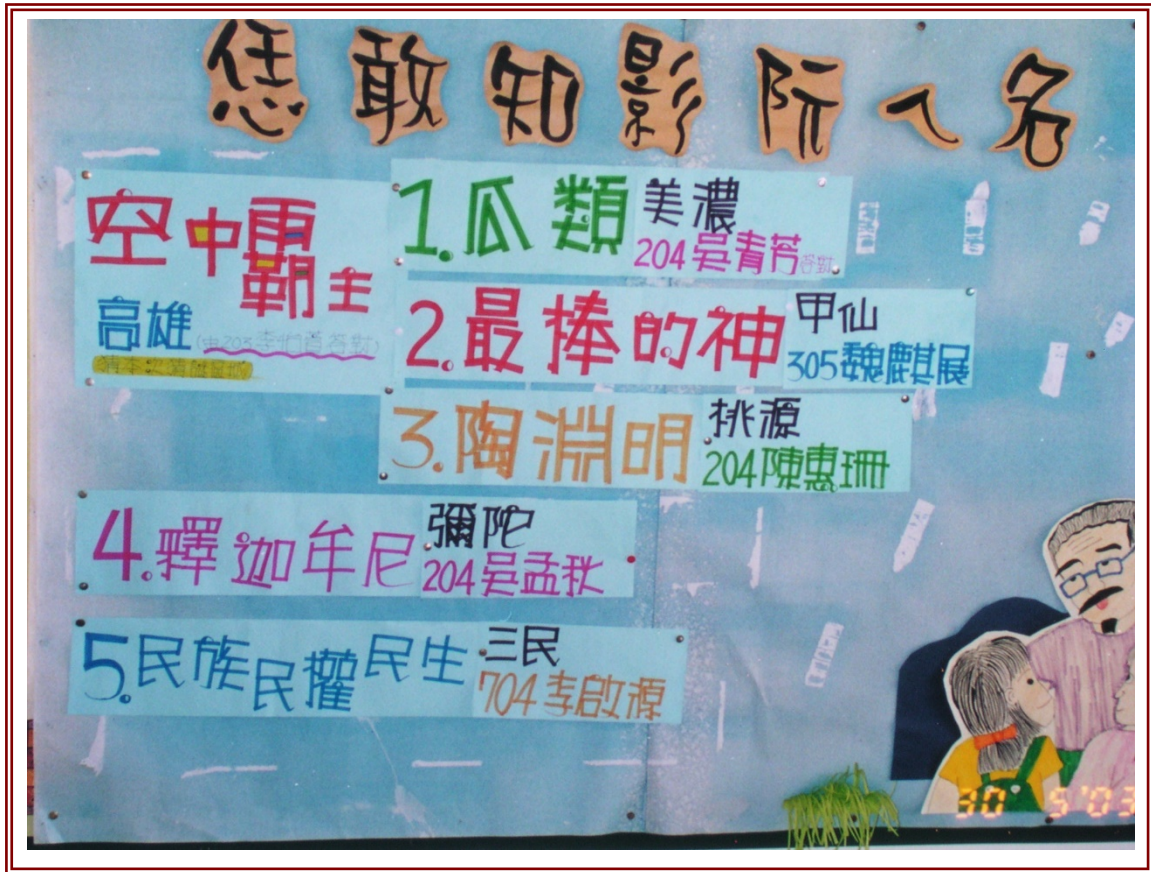 恁敢知影阮ㄟ名
空中霸主
高雄
1.瓜類 美濃
204吳青芳答對
2.最棒的神 甲仙
305魏麒展
3.陶淵明 桃源
204陳惠珊
4.釋迦牟尼 彌陀
204吳孟秋
5.民族民權民生 三民
704李啟源
30 5'03